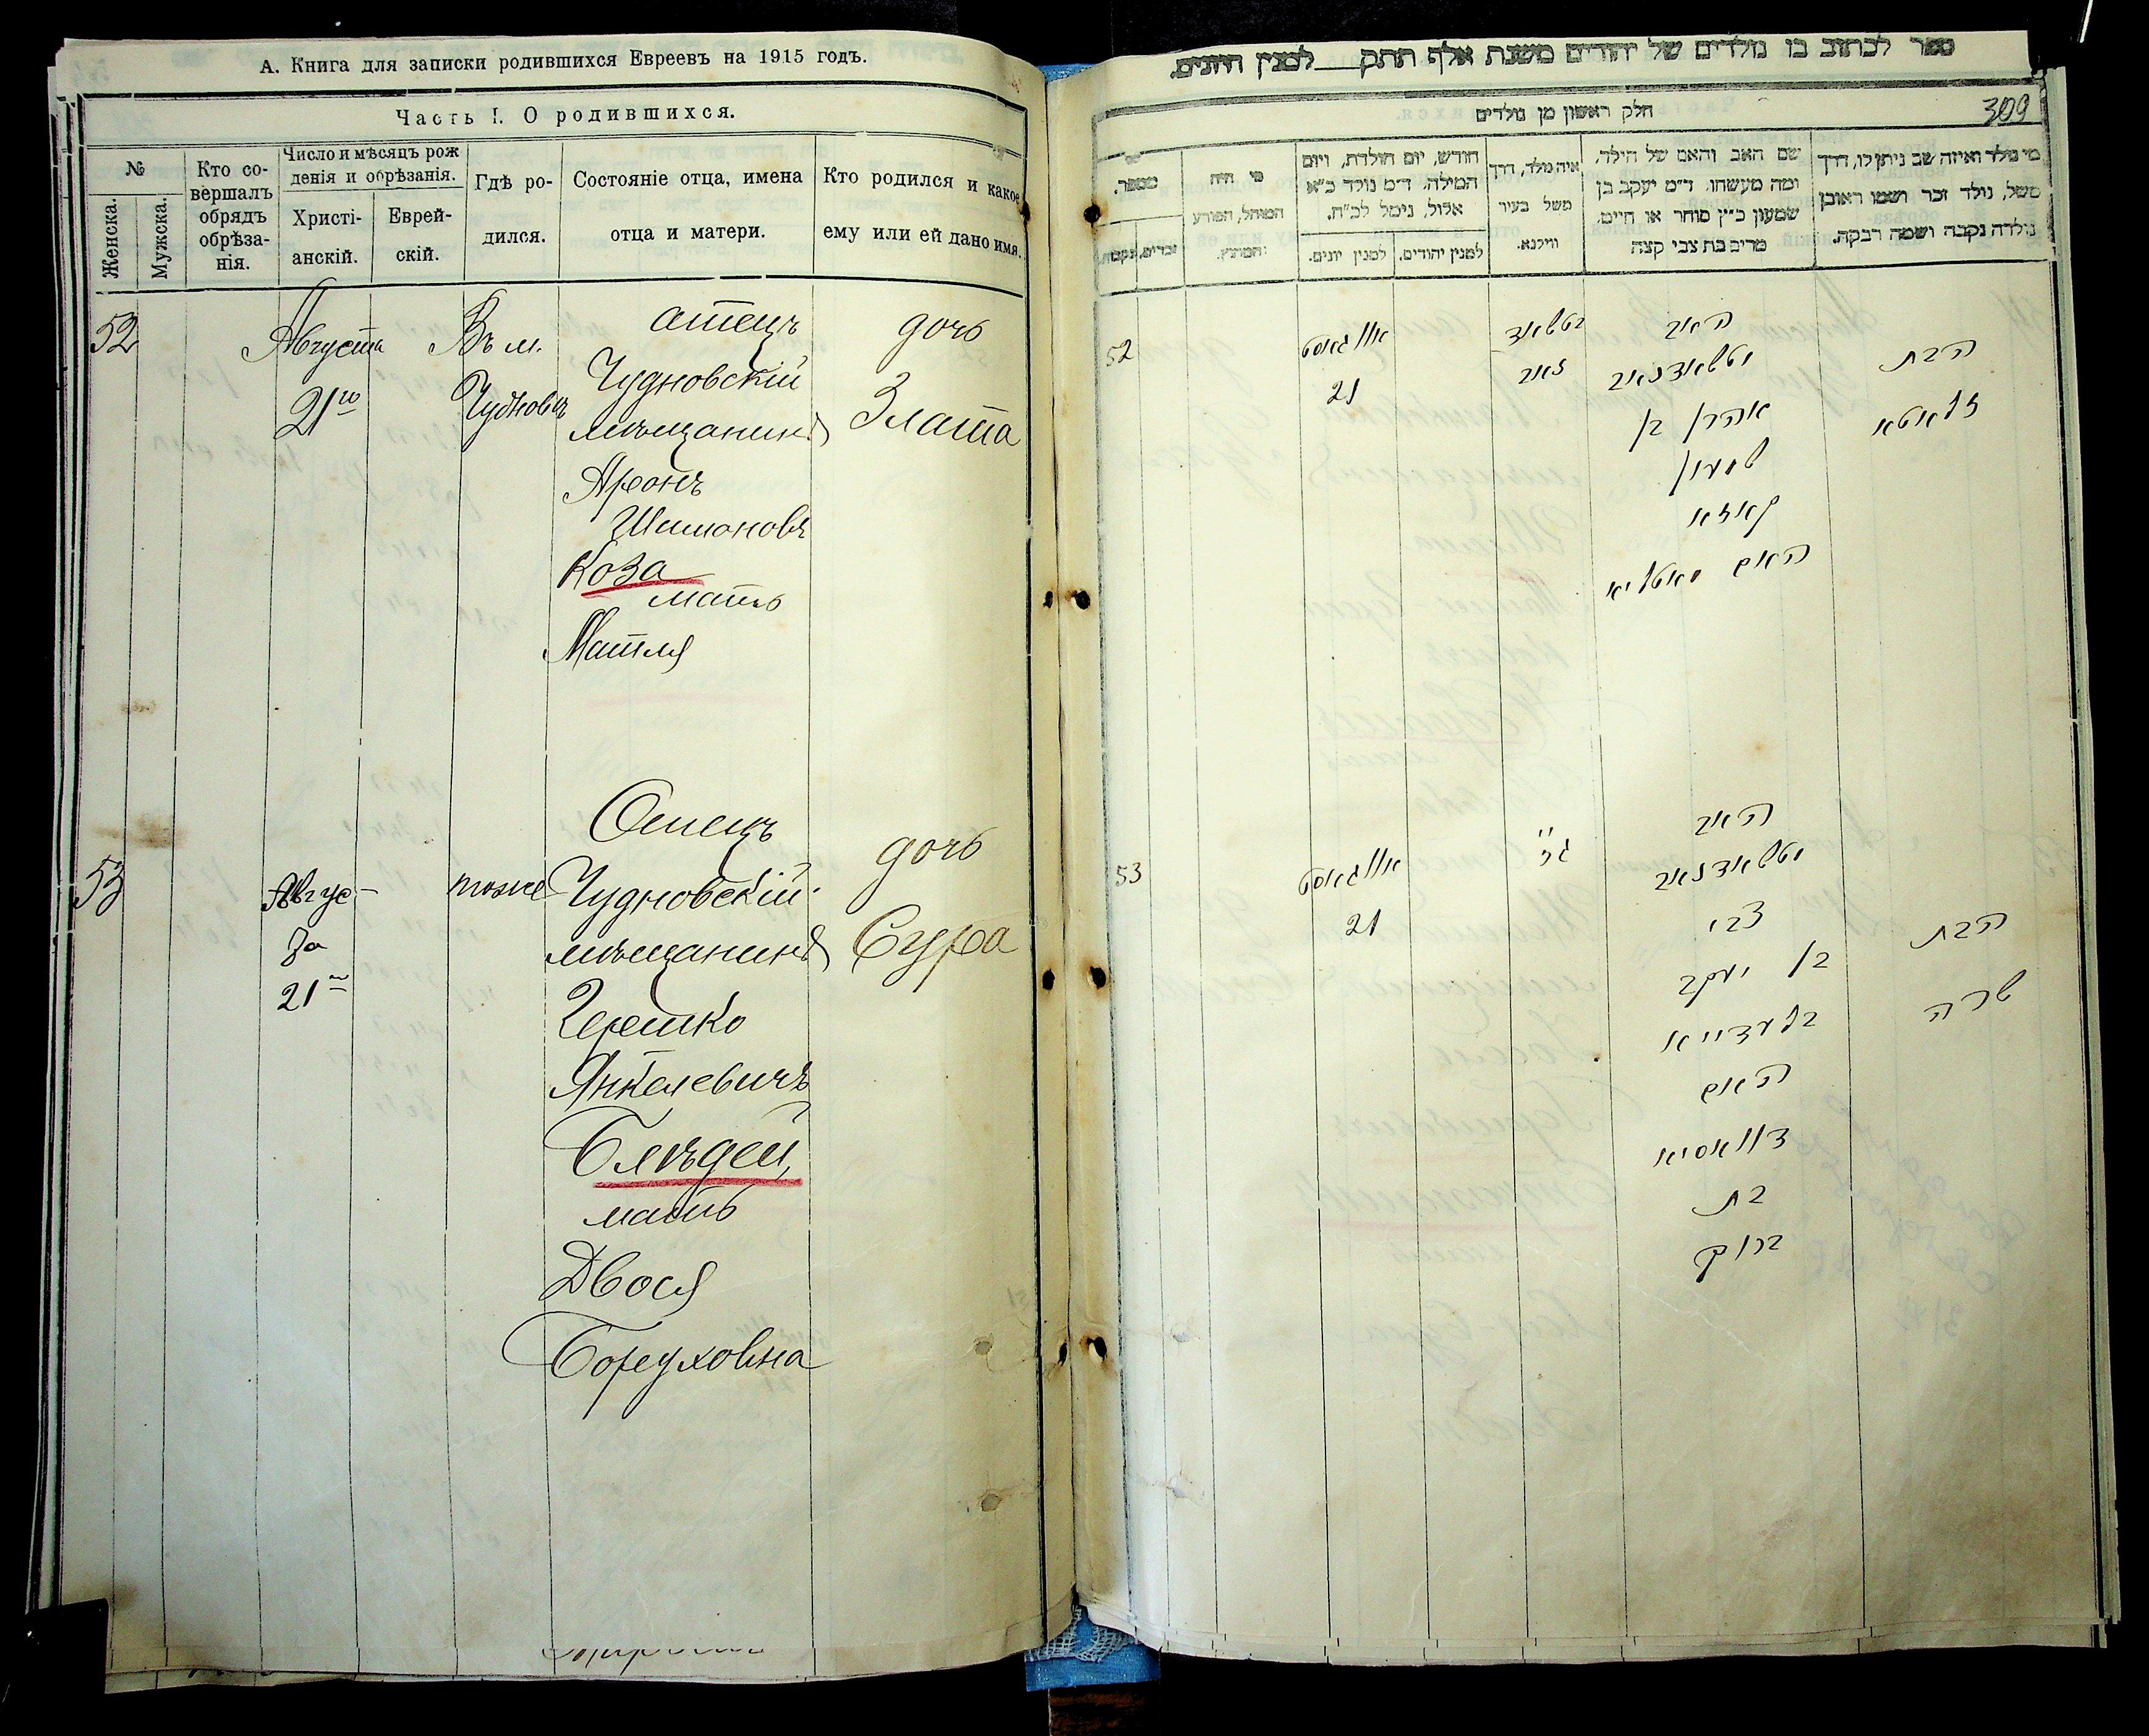 А. Книга для записки родившихся Евреевъ на 1915 годъ.
Часть I. О родившихся.
№
Женска.
Мужска.
Кто со-
вершалъ
обрядъ
обрѣза-
нія.
Число и мѣсяцъ рож
денія и обрѣзанія.
Христі-
анскій.
Еврей-
скій.
Гдѣ ро-
дился.
Состояніе отца, имена
отца и матери.
Кто родился и какое
ему или ей дано имя.
52
Августа
21го
Въ м.
Чудновъ
отецъ
Чудновскій
мѣщанинъ
Аронъ
Шимоновъ
Коза
мать
Матля
дочь
Злата
53
Авгус-
та
21го
тоже
Отецъ
Чудновскій
мѣщанинъ
Гершко
Янкелевичъ
Блѣдей,
мать
Двося
Боруховна
дочь
Сура
ספר לכתוב בו נולדים של יהודים משנת אלף תתק למנין היונים.
309
חלק ראשון מן נולדים
מספר.
זכרים.
נקבות.
מי היה
המוהל, הפורע
והמוצץ.
חודש, יום הולדת, ויום
המילה. ד״מ נולד כ״א
אלול, נימל לכ״ח.
למנין יונים.
למנין יהודים.
איה נולד, דרך
משל בעיר
ווילנא.
שם האב והאם של הילד,
ומה מעשהו. ד״מ יעקב בן
שמעון כ״ץ סוחר או חייט,
מרים בת צבי קצה
מי נולד ואיזה שב ניתן לו, דרך
משל, נולד זכר ושמו ראובן
נולדה נקבה ושמה רבקה.
52
אווגאסט
21
האב
אהרן בן
שמעון
קאזא
האם מאטליא
הבת
זלאטא
53
אווגאסט
21
האב
צבי
בן יעקב
האם
דוואסיא
בת
ברוך
הבת
שרה